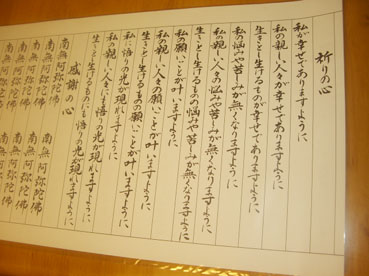 祈りの心
私が幸せでありますように
私の親しい人々が幸せでありますように
生きとし生けるものが幸せでありますように
私の悩みや苦しみが無くなりますように
私の親しい人々の悩みや苦しみが無くなりますように
生きとし生けるものの悩みや苦しみが無くなりますように
私の願いごとが叶いますように
私の親しい人々の願いごとが叶いますように
生きとし生けるものの願いごとが叶いますように
私に悟りの光が現れますように
私の親しい人々にも悟りの光が現れますように
生きとし生けるものにも悟りの光が現れますように
感謝の心
南無阿弥陀佛 南無阿弥陀佛
南無阿弥陀佛 南無阿弥陀佛
南無阿弥陀佛 南無阿弥陀佛
南無阿弥陀佛 南無阿弥陀佛